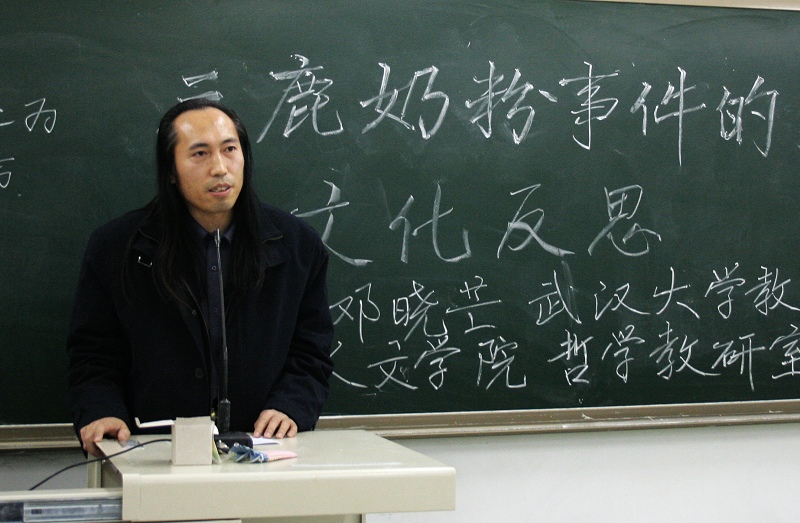 为
三鹿奶粉事件的
文化反思
邓晓芒 武汉大学教
人文学院 哲学教研室